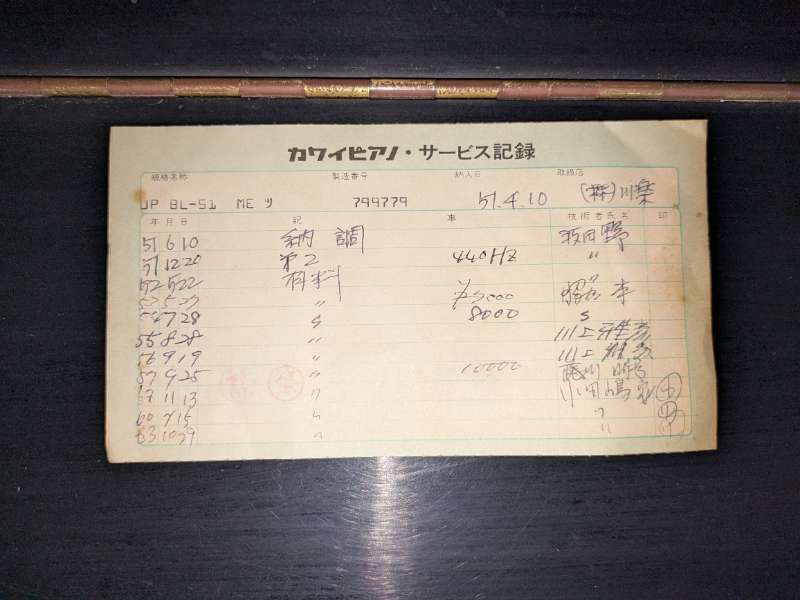 カワイピアノ・サービス記録
規格名称 製造番号 納入日 取扱店
UP BL-51 ME ツ 799779 51.4.10 (株)川楽
年月日 記 事 技術者氏名 印
51 6 10 納 調 野
51 12 20 第2 440HZ 〃
52 5 22 有料 〃
〃 ¥5000 本
7 28 8000
55 8 28 〃 川上
56 9 19 〃 川上
57 9 25 〃 10000
57 11 13 〃 小田嶋
60 7 15 〃 〃
63 10 29 〃 〃